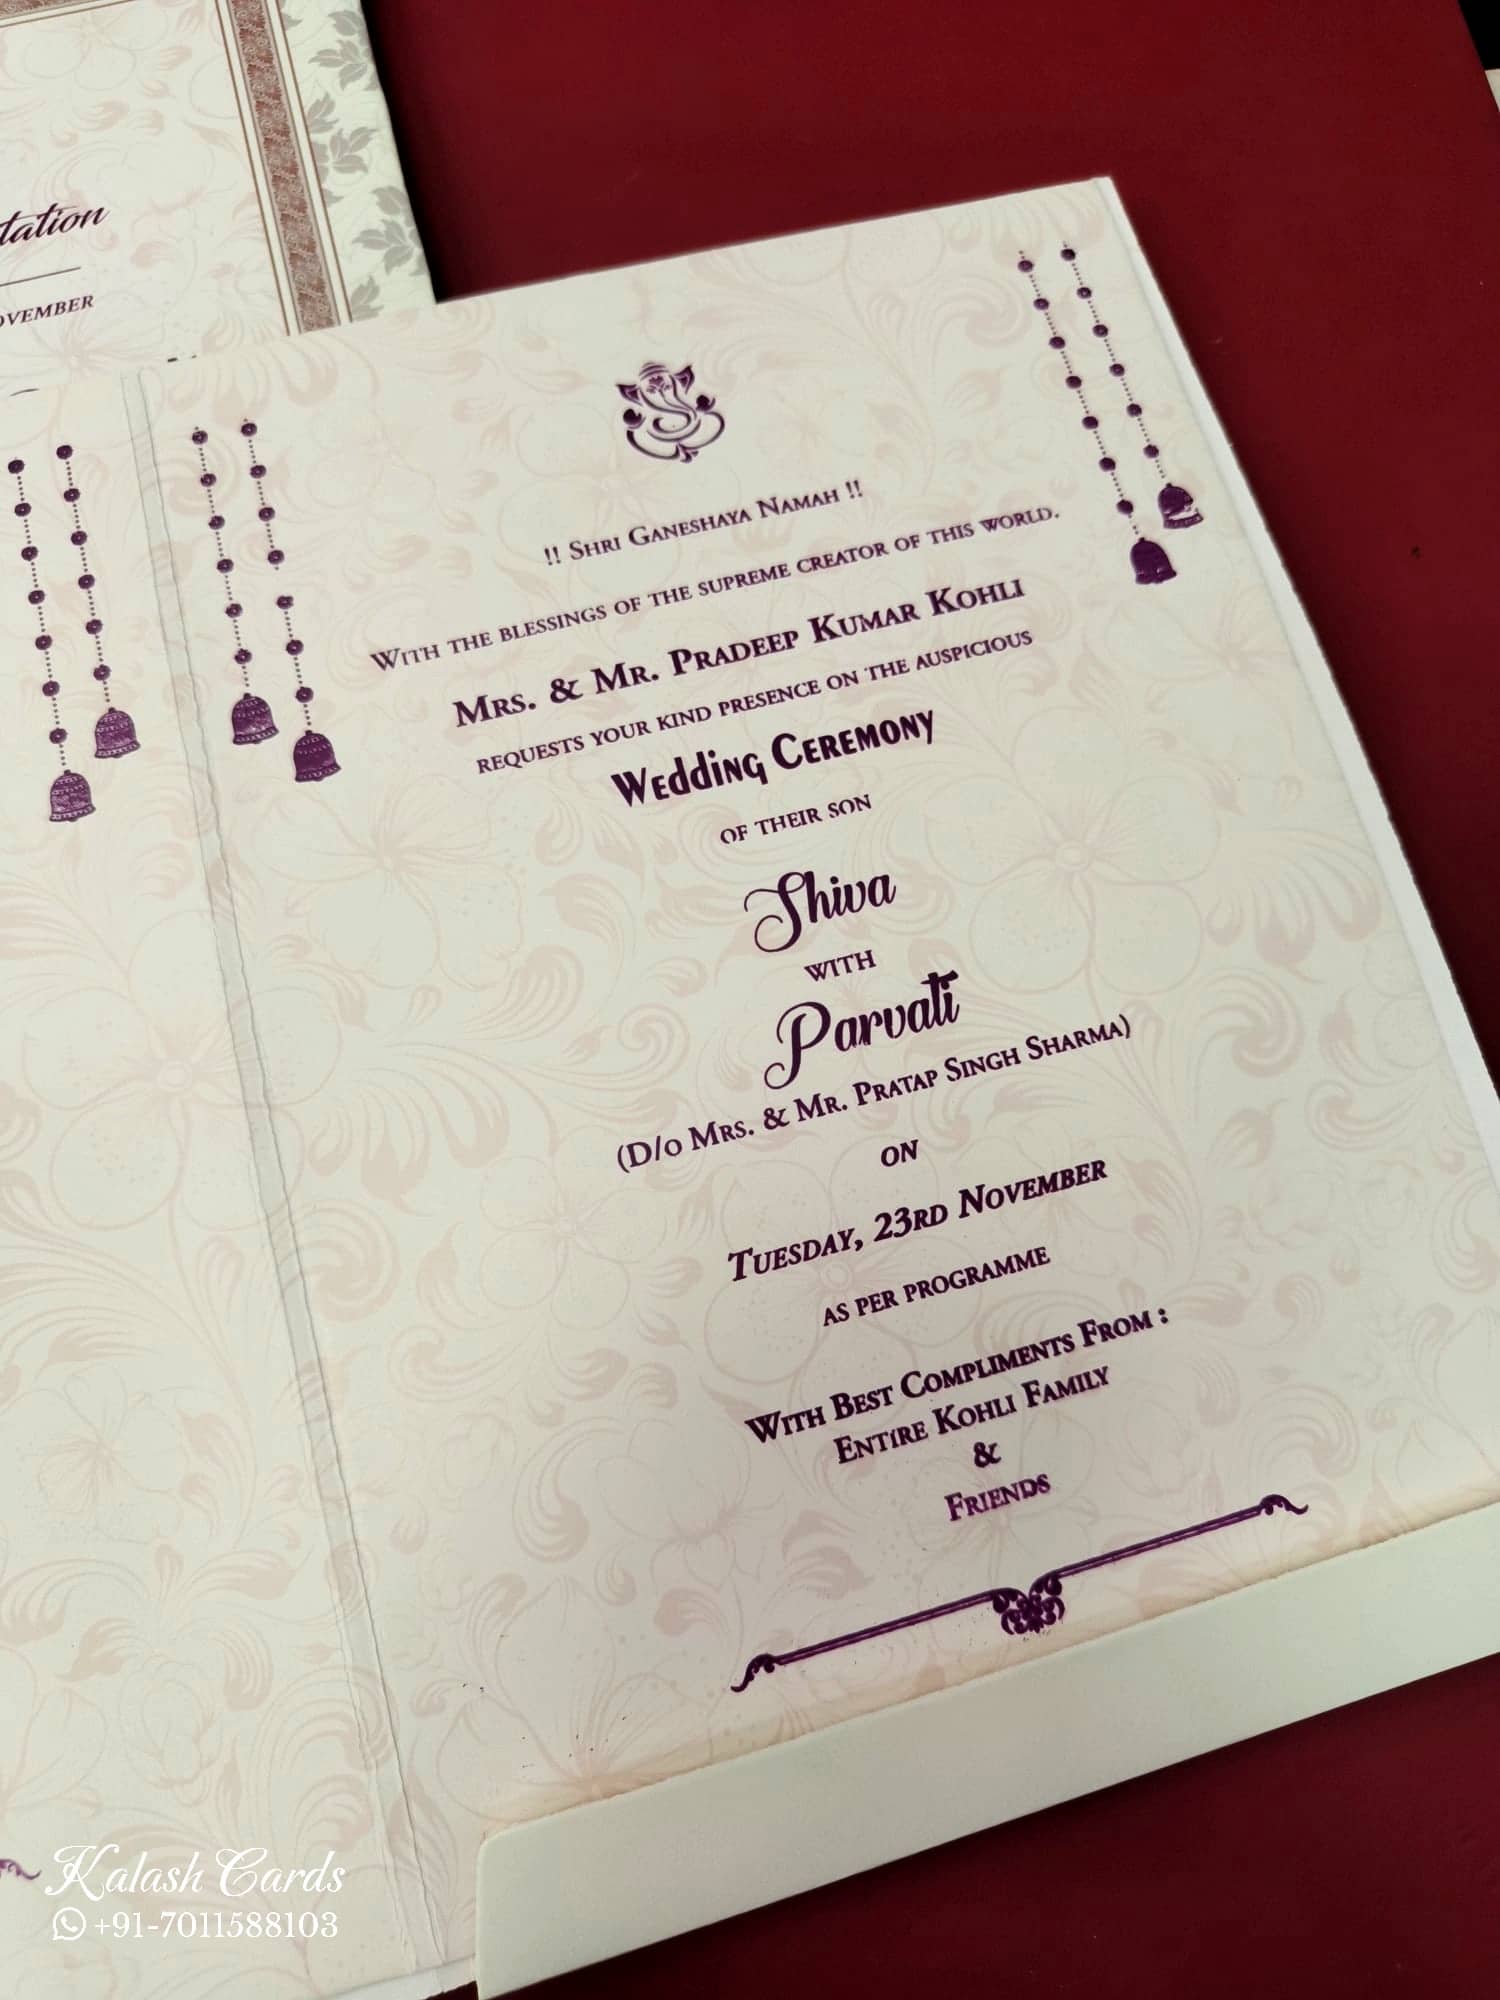 !! Shri Ganeshaya Namah !!
With the blessings of the supreme creator of this world.
Mrs. & Mr. Pradeep Kumar Kohli
requests your kind presence on the auspicious
Wedding Ceremony
of their son
Shiva
with
Parvati
(D/o Mrs. & Mr. Pratap Singh Sharma)
on
Tuesday, 23rd November
as per programme
With Best Compliments From :
Entire Kohli Family
&
Friends
Kalash Cards
+91-7011588103